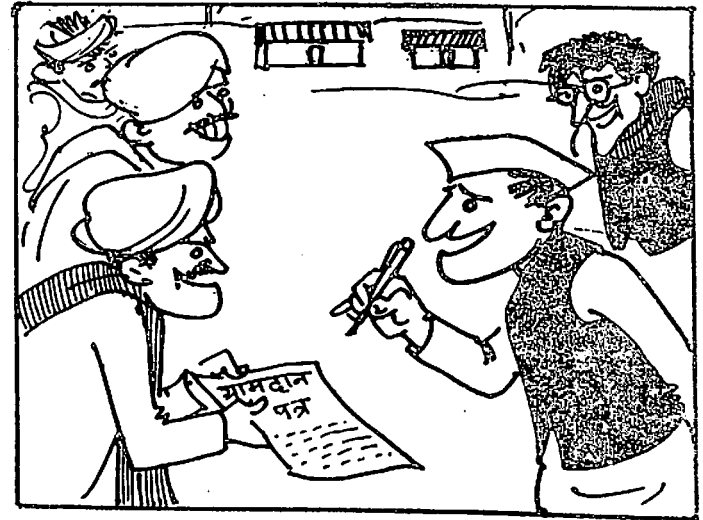 ग्रामदान
पत्र